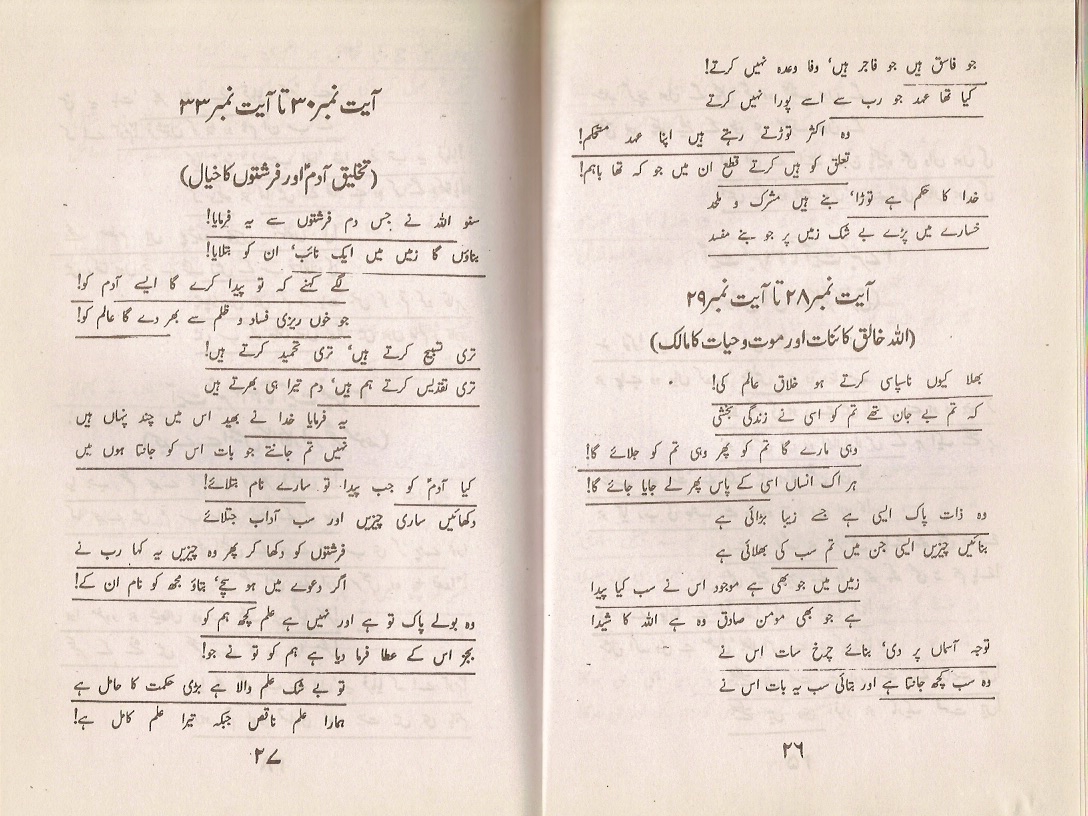 جو فاسق ہیں جو فاجر ہیں، وفا وعدہ نہیں کرتے!
کیا تھا عہد جو رب سے اسے پورا نہیں کرتے
وہ اکثر توڑتے رہتے ہیں اپنا عہد مستحکم!
تعلق کو ہیں کرتے قطع ان میں جو کہ تھا باہم!
خدا کا حکم ہے توڑا، بنے ہیں مشرک و ملحد
خسارے میں پڑے بے شک زمیں پر جو بنے مفسد
آیت نمبر ۲۸ تا آیت نمبر ۲۹
(اللہ خالق کائنات اور موت و حیات کا مالک)
بھلا کیوں ناسپاسی کرتے ہو خلاق عالم کی!
کہ تم بے جان تھے تم کو اسی نے زندگی بخشی
وہی مارے گا تم کو پھر وہی تم کو جلائے گا!
ہر اک انساں اسی کے پاس پھر لے جایا جائے گا!
وہ ذات پاک ایسی ہے جسے زیبا بڑائی ہے
بنائیں چیزیں ایسی جن میں تم سب کی بھلائی ہے
زمیں میں جو بھی ہے موجود اس نے سب کیا پیدا
ہے جو بھی مومن صادق وہ ہے اللہ کا شیدا
توجہ آسماں پر دی، بنائے چرخ سات اس نے
وہ سب کچھ جانتا ہے اور بتائی سب یہ بات اس نے
۲۶
آیت نمبر ۳۰ تا آیت نمبر ۳۳
(تخلیق آدمؑ اور فرشتوں کا خیال)
سنو اللہ نے جس دم فرشتوں سے یہ فرمایا!
بناؤں گا زمیں میں ایک نائب، ان کو بتلایا!
لگے کہنے کہ تو پیدا کرے گا ایسے آدم کو!
جو خوں ریزی فساد و ظلم سے بھر دے گا عالم کو!
تری تسبیح کرتے ہیں، تری تحمید کرتے ہیں!
تری تقدیس کرتے ہم ہیں، دم تیرا ہی بھرتے ہیں
یہ فرمایا خدا نے بھید اس میں چند پنہاں ہیں
نہیں تم جانتے جو بات اس کو جانتا ہوں میں
کیا آدمؑ کو جب پیدا تو سارے نام بتلائے!
دکھائیں ساری چیزیں اور سب آداب جتلائے
فرشتوں کو دکھا کر پھر وہ چیزیں یہ کہا رب نے
اگر دعوے میں ہو سچے، بتاؤ مجھ کو نام ان کے!
وہ بولے پاک تو ہے اور نہیں ہے علم کچھ ہم کو
بجز اس کے عطا فرما دیا ہے ہم کو تو نے جو!
تو بے شک علم والا ہے بڑی حکمت کا حامل ہے
ہمارا علم ناقص جبکہ تیرا علم کامل ہے!
۲۷